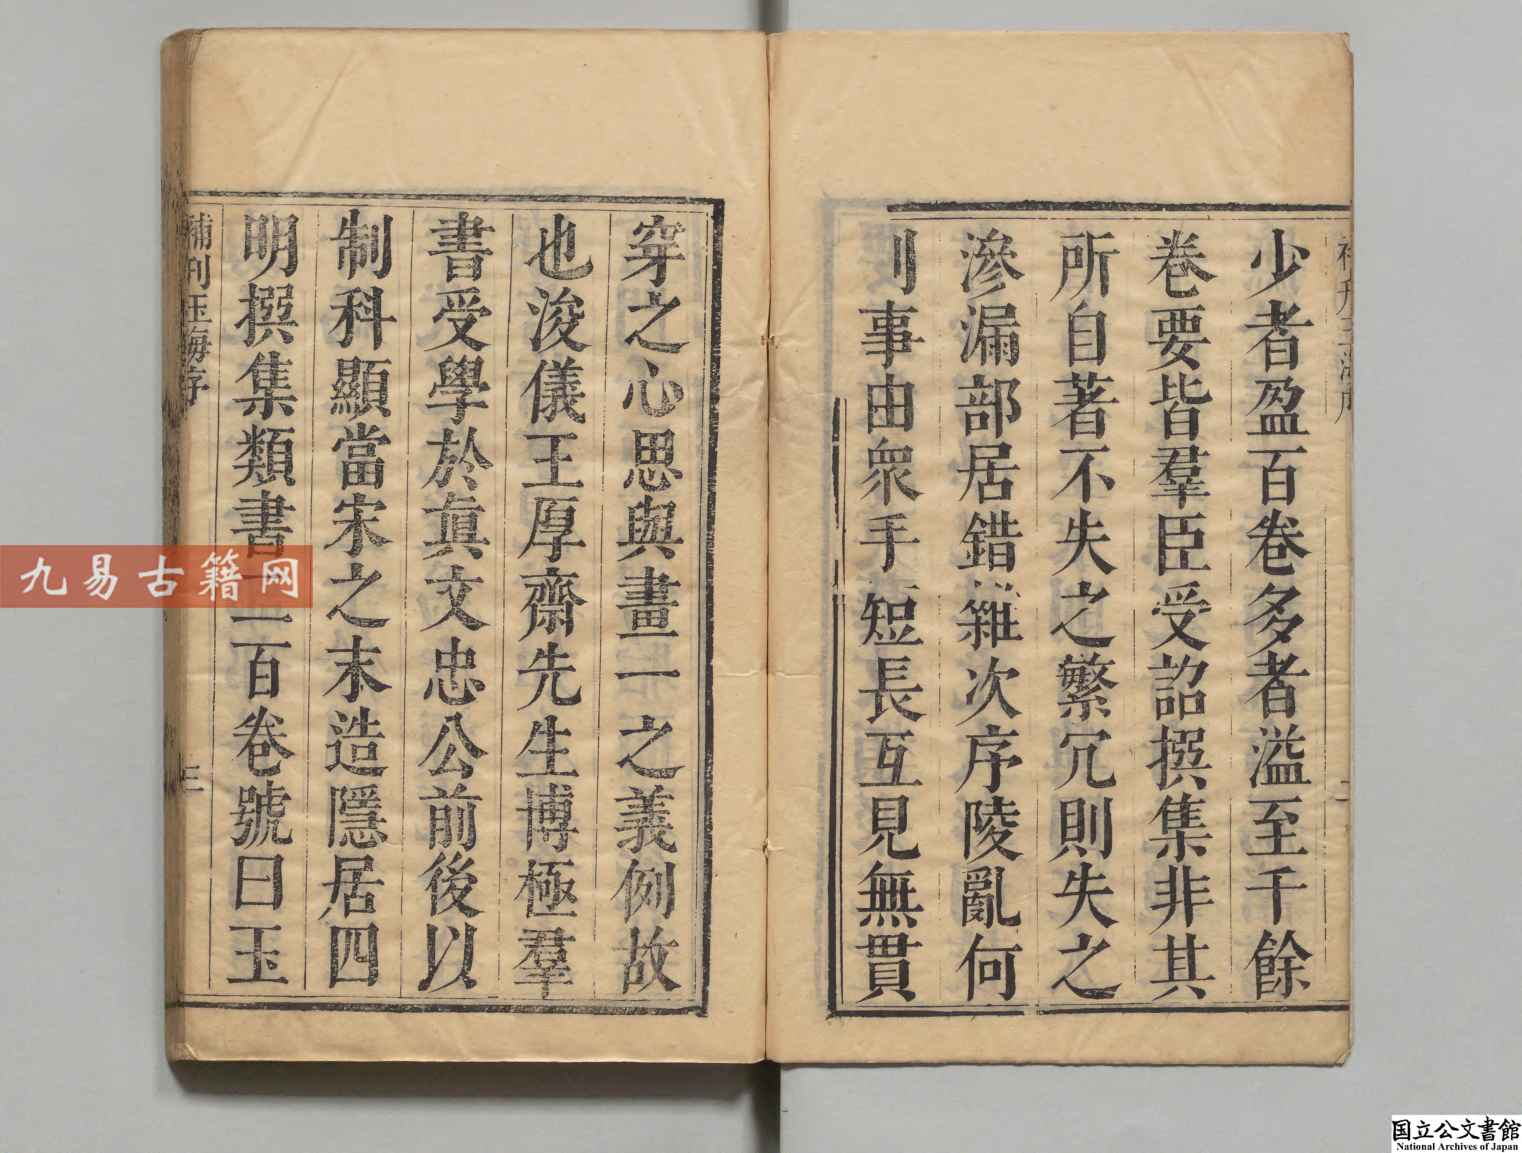 少者盈百卷多者溢至千餘
卷要皆羣臣受詔撰集非其
所自著不失之繁冗則失之
滲漏部居錯雜次序陵亂何
則事由衆手短長互見無貫
穿之心思與畫一之義例故
也浚儀王厚齋先生博極羣
書受學於眞文忠公前後以
制科顯當宋之末造隱居四
明撰集類書二百卷號曰玉
補刊玉海序
三
九易古籍网
国立公文書館
National Archives of Japan